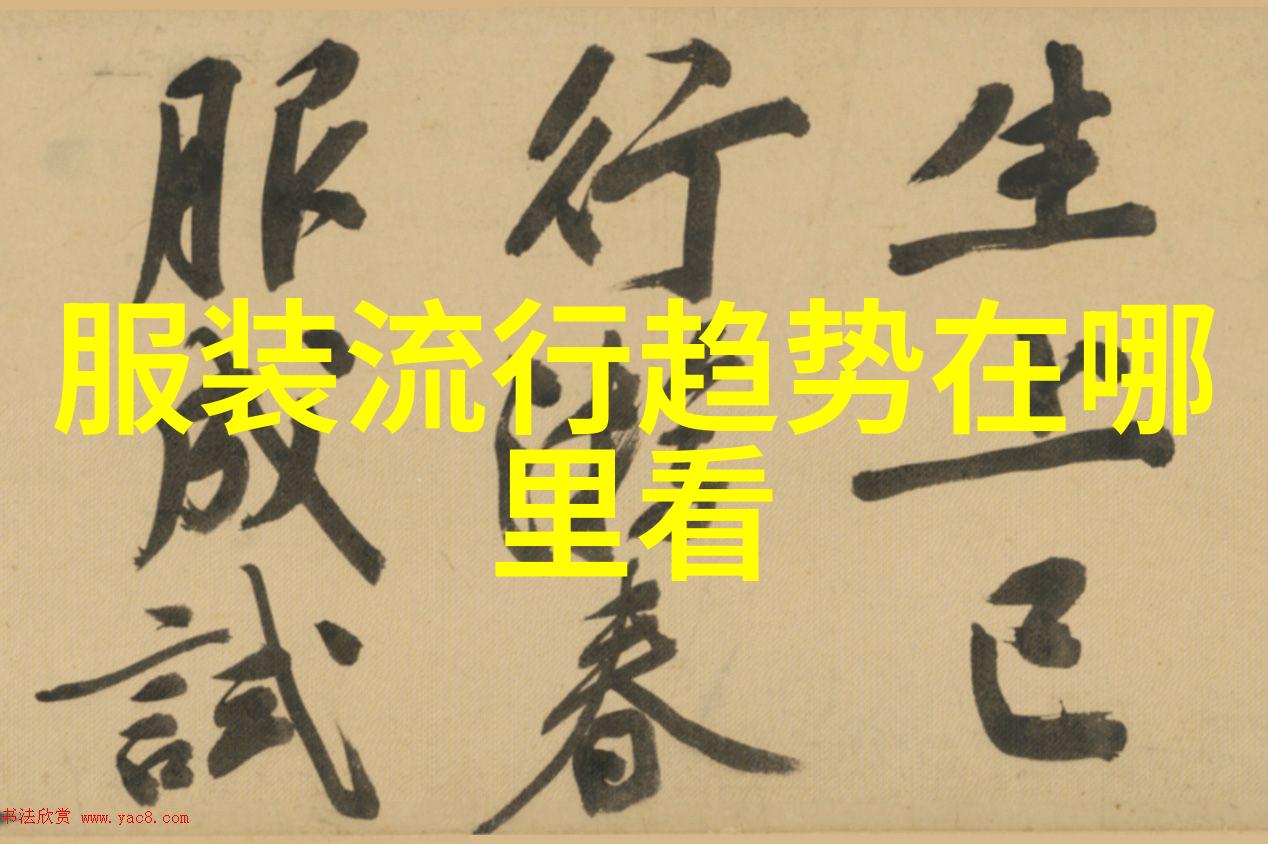 服装流行趋势在哪里看
生 已
行 春
服成試
书法欣赏 www.yac8.com